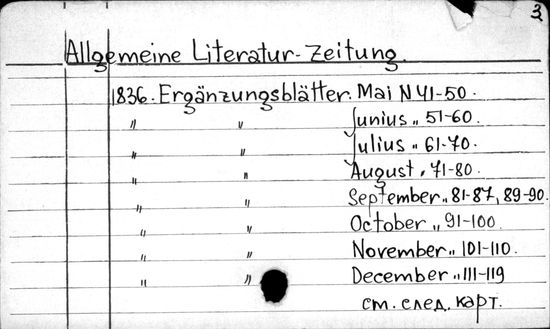 3
Allgemeine Literatur-Zeitung.
1836. Ergänzungsblätter. Mai N 41-50.
" " Junius " 51-60.
" " Julius " 61-70.
" " August " 71-80.
" " September " 81-87, 89-90.
" " October " 91-100.
" " November " 101-110.
" " December " 111-119
см. след. карт.